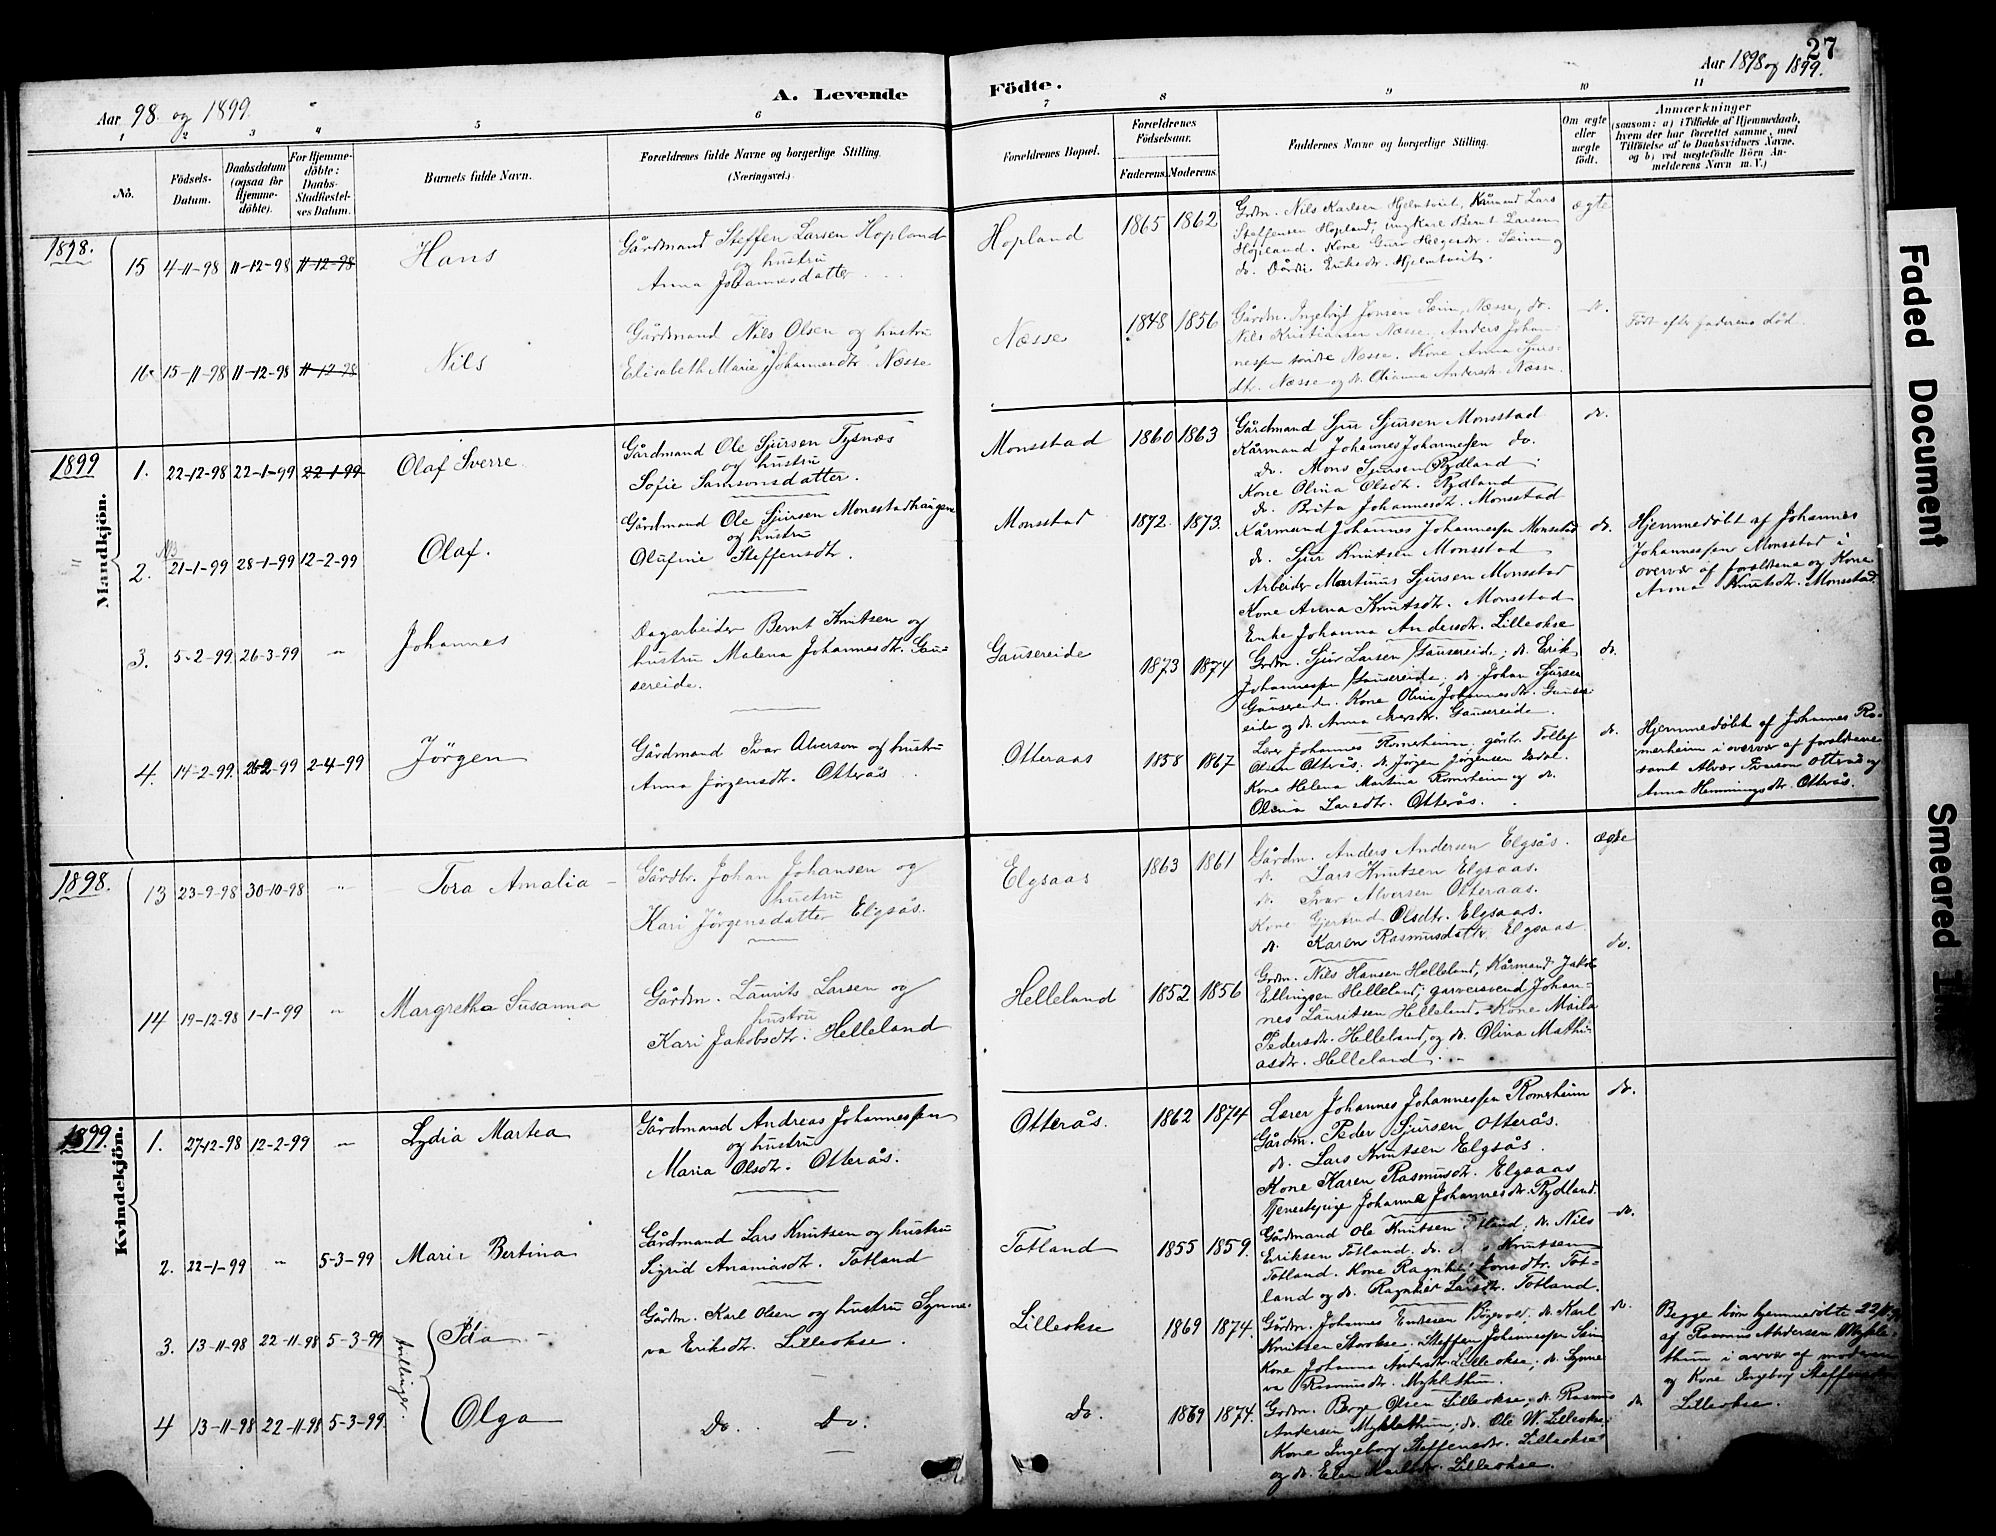 27
Aar 98. og 1899.
A. Levende
Födte.
Aar 1898 og 1899.
1 2 3 4 5 6 7 8 9 10 11
No.
Födsels-Datum.
Daabsdatum (ogsaa for Hjemme-döbte).
For Hjemme-döbte: Daabs-Stadfæstel-ses Datum.
Barnets fulde Navn.
Forældrenes fulde Navne og borgerlige Stilling. (Næringsvei.)
Forældrenes Bopæl.
Forældrenes Födselsaar.
Faderens. Moderens.
Faddernes Navne og borgerlige Stilling.
Om ægte eller uægte födt.
Anmærkninger
(saasom: a) i Tilfælde af Hjemmedaab, hvem der har forrettet samme, med Tilföielse af to Daabsvidners Navne, og b) ved uægtefödte Börn An-melderens Navn m. V.)
Mandkjön.
1898.
15 4-11-98 11-12-98 11-12-98 Hans
Gårdmand Steffen Larsen Hopland
og hustru
Anna Johannesdatter
Hopland 1865 1862
Grdm. Nils Karlsen Hjelmtveit, Kårmand Lars
Steffensen Hopland, ungkarl Bernt Larsen
Hopland. Kone Guro Helgesdr. Seim og
do. Dårdi Eriksdr. Hjelmtveit.
ægte
16 15-11-98 11-12-98 11-12-98 Nils
Gårdmand Nils Olsen og hustru
Elisabeth Marie Johannesdtr. Næsse
Næsse 1848 1856
Gårdm. Ingebrigt Jonsen Seim, Næsse, do.
Nils Kristiansen Næsse. Anders Johan-
nessen Næsse. Kone Anna Sjurs-
dtr. Næsse og do. Olianna Andersdr. Næsse.
do.
Født efter faderens død.
1899
1. 22-12-98 22-1-99 22-1-99 Olaf Sverre
Gårdmand Ole Sjursen Tysnes
og hustru
Sofie Samsonsdatter.
Monsstad 1860 1863
Gårdmand Sjur Sjursen Monsstad
Kårmand Johannes Johannessen do.
do. Mons Sjursen Rydland
Kone Olina Olsdtr. Rydland
do. Brita Johannesdtr. Monsstad
do.
NB
2. 21-1-99 28-1-99 12-2-99 Olaf.
Gårdmand Ole Sjursen Monsstadhaugene
og hustru
Olufine Steffensdtr.
Monsstad 1872. 1873.
Kårmand Johannes Johannessen Monsstad
do. Sjur Knutsen Monsstad
Arbeider Martinus Sjursen Monsstad
Kone Anna Knutsdtr. Monsstad
Enke Johanna Andersdtr. Lilleokse
do.
Hjemmedøbt af Johannes
Johannessen Monsstad i
overvær af forældrene og Kone
Anna Knutsdtr. Monsstad.
3. 5-2-99 26-3-99 " Johannes
Dagarbeider Bernt Knutsen og
hustru Malena Johannesdtr. Gau-
sereide.
Gausereide 1873 1874
Grdm. Sjur Larsen Gausereide; do. Erik
Johannessen Gausereide, do. Johan Sjursen
Gausereide. Kone Olina Johannesdtr. Gause-
reide og do. Anna Iversdtr. Gausereide.
do.
4. 14-2-99 26-2-99 2-4-99 Jörgen
Gårdmand Ivar Alverson og hustru
Anna Jörgensdtr. Otterås
Otteraas 1858 1867
Lærer Johannes Romerheim, gårdbr. Tollef
Olsen Otterås. do. Jørgen Jørgensen
Kone Helena Martina Romerheim og do.
Olina Larsdtr. Otterås.
do.
Hjemmedøbt af Johannes Ro-
merheim i overvær af forældrene
samt Alver Iverson Otterås og
Anna Hemmingsdtr. Otterås.
Kvindekjön.
1898.
13 23-9-98 30-10-98 " Tora Amalia
Gårdbr. Johan Johansen og
hustru
Kari Jörgensdatter Elgsås.
Elgsaas 1863 1861
Gårdm. Anders Andersen Elgsås.
do. Lars Knutsen Elgsaas.
do. Ivar Alversen Otteraas.
Kone Gjertrud Olsdtr. Elgsaas.
do. Karen Rasmusdatter Elgsaas
ægte
14 19-12-98 1-1-99 " Margretha Susanna
Gårdm. Laurits Larsen og
hustru
Kari Jakobsdtr. Helleland
Helleland 1852 1856
Grdm. Nils Hansen Helleland, Kårmand Jakob
Ellingsen Helleland, garversvend Johan-
nes Lauritsen Helleland. Kone Marta
Pedersdtr. Helleland, og do. Olina Mathi-
asdtr. Helleland.
do.
1899.
1. 27-12-98 12-2-99 " Lydia Martea
Gårdmand Andreas Johannessen
og hustru
Maria Olsdtr. Otterås.
Otterås. 1862 1874
Lærer Johannes Johannessen Romerheim
Gårdm. Peder Sjursen Otterås.
do. Lars Knutsen Elgsås.
Kone Karen Rasmusdtr. Elgsaas
Tjenestepige Johanne Johannesdtr. Rydland.
do.
2. 22-1-99 " 5-3-99 Marie Bertina
Gårdmand Lars Knutsen og hustru
Sigrid Ananiasdtr. Totland
Totland 1855 1859.
Gårdmand Ole Knutsen Totland, do. Nils
Eriksen Totland. do. Knutsen
Totland. Kone Ragnhild Jonsdtr. Tot-
land og do. Ragnhild Larsdtr. Totland.
do.
3. 13-11-98 22-11-98 5-3-99 tvillinger. Ida
Gårdm. Karl Olsen og hustru Synne-
va Eriksdtr. Lilleokse.
Lilleokse 1869 1874.
Gårdm. Johannes Endresen Bøgevold, do. Karl
Knutsen Storokse. Steffen Johannessen Seim
Kone Johanna Andersdtr. Lilleokse; do. Synne-
va Rasmusdtr. Myklethun.
do.
Begge børn hjemmedøbte 22/11
af Rasmus Andersen Mykle-
thun i overvær af moderen
og Kone Ingeborg Steffensdtr.
Lilleokse.
4 13-11-98 22-11-98 5-3-99. Olga
Do. Do.
Do. 1869 1874.
Grdm. Berge Olsen Lilleokse, do. Rasmus
Andersen Myklethun, do. Ole W. Lilleokse.
Kone Ingeborg Steffensdtr. Lilleokse
og do. Elen Karlsdtr. Lilleokse.
do.
Faded Document
Smeared